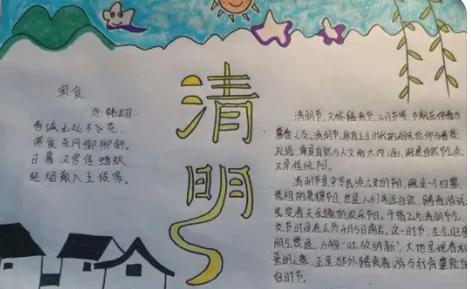 寒食
唐 韩翃
春城无处不飞花，
寒食东风御柳斜。
日暮汉宫传蜡烛
轻烟散入五侯家。
清明
清明节，又称踏青节、三月节等，节期在仲春与
暮春之交。清明节，
礼俗，兼具自然与人文两大内涵，既是自然节气点
又是传统节日。
清明节是中华民族古老的节日，既是一个扫墓
祭祖的肃穆节日，也是人们亲近自然、踏青游玩、
享受春天乐趣的欢乐节日。
交节时间在公历4月5日前后。这一时节，生气旺盛
阴气衰退，万物“吐故纳新”，大地呈现春和
景明之象，正是郊外踏青春游与行清墓祭的